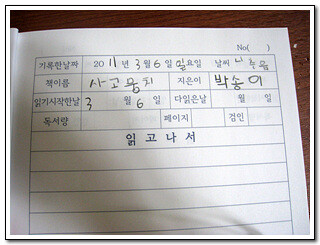 No( )
기록한날짜 2011년 3월 6일 일요일 날씨
책이름 사고뭉치 지은이 박송이
읽기시작한날 3월 6일 다읽은날 월 일
독서량 페이지 검인
읽고나서